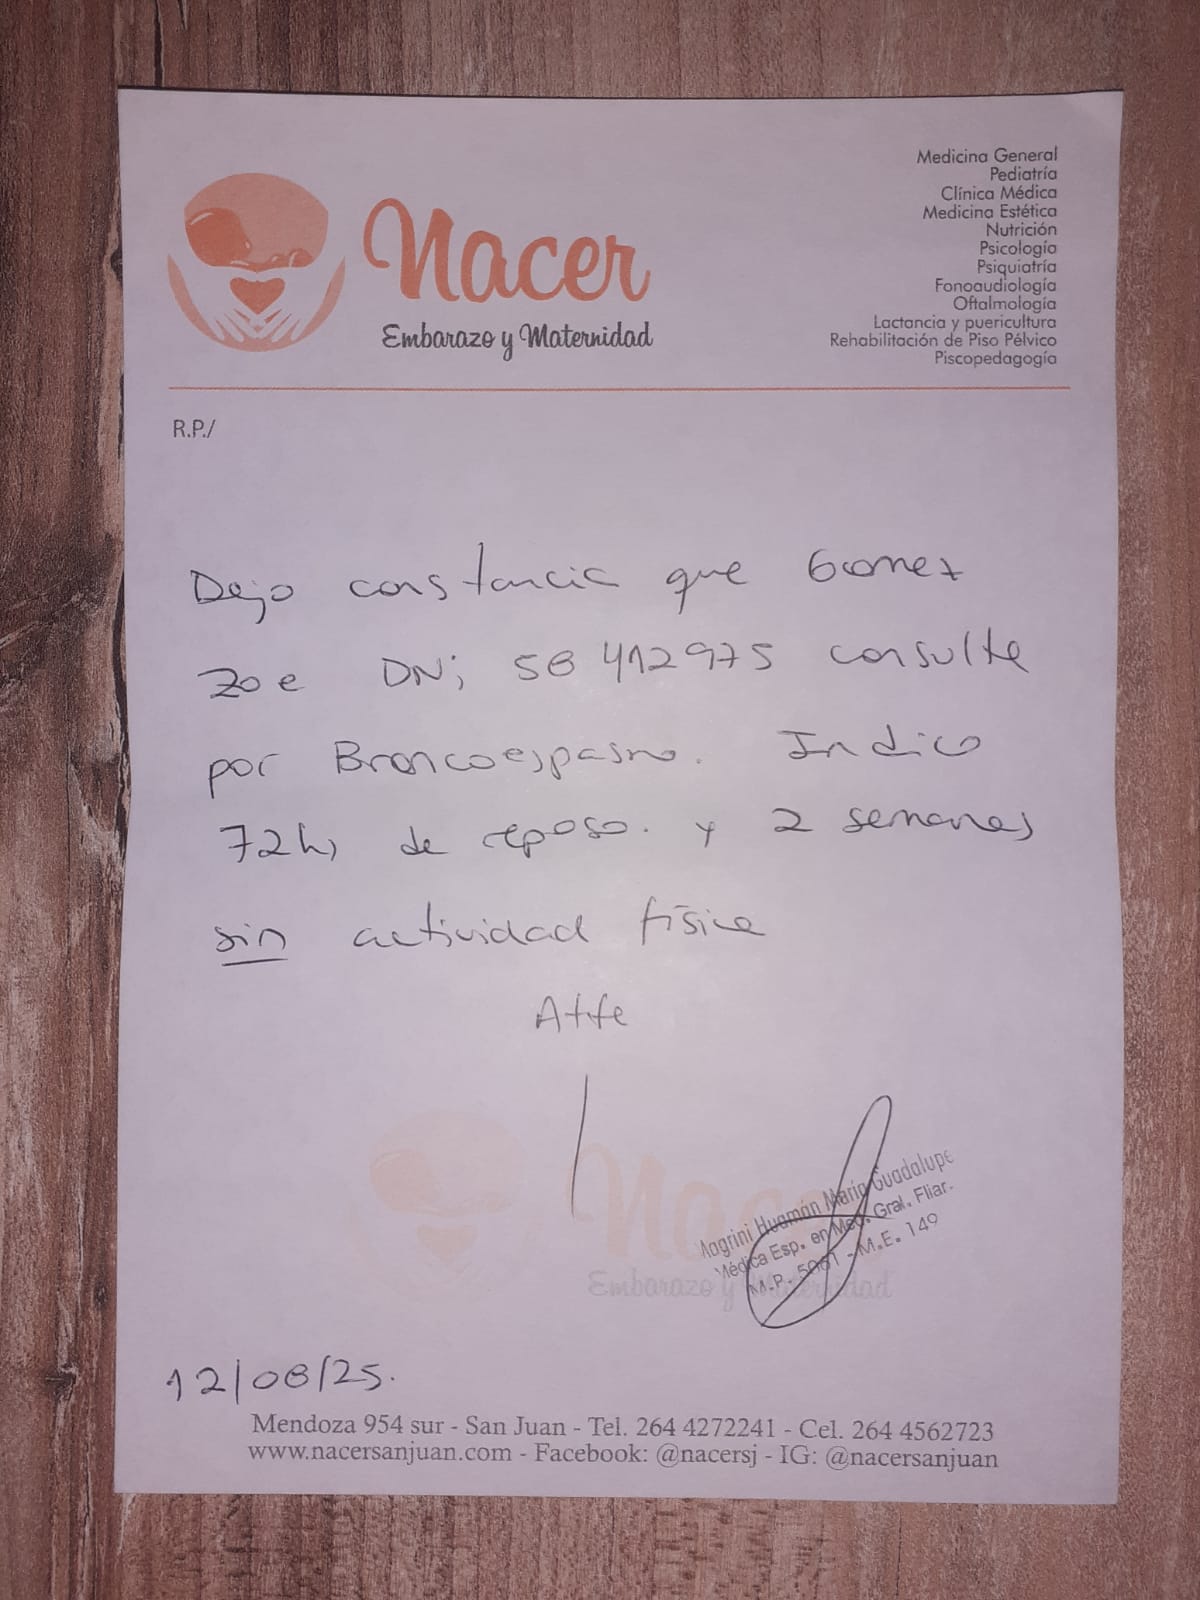 Nacer
Embarazo y Maternidad
Medicina General
Pediatría
Clínica Médica
Medicina Estética
Nutrición
Psicología
Psiquiatría
Fonoaudiología
Oftalmología
Lactancia y puericultura
Rehabilitación de Piso Pélvico
Piscopedagogía
R.P./
Dejo constancia que Gomez
Zoe DNI 58 412975 consulte
por Broncoespasmo. Indico
72hs de reposo. y 2 semanas
sin actividad física
Atte
Nacer
Embarazo y Maternidad
Magrini Huamán María Guadalupe
Médica Esp. en Med. Gral. Fliar.
M.P. 5061 - M.E. 149
12/08/25.
Mendoza 954 sur - San Juan - Tel. 264 4272241 - Cel. 264 4562723
www.nacersanjuan.com - Facebook: @nacersj - IG: @nacersanjuan